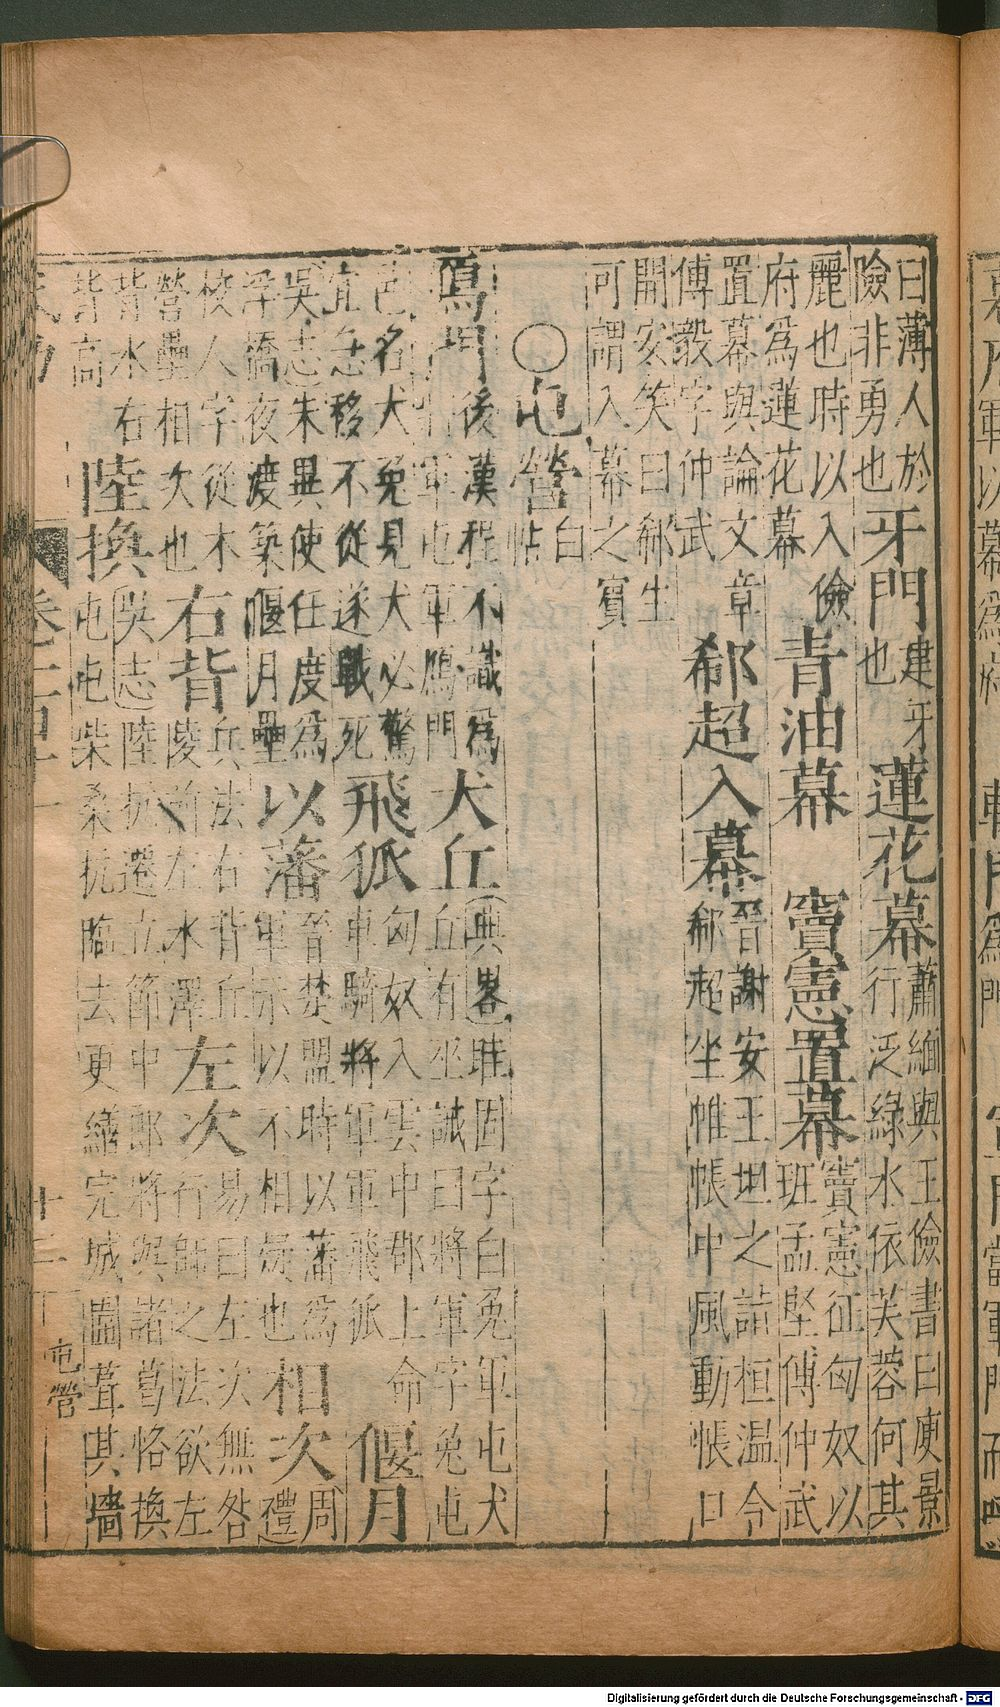 曰薄人於險非勇也 牙門 建牙也 蓮花幕 蕭緬與王儉書曰庾景行泛綠水依芙蓉何其
麗也時以入儉府為蓮花幕 青油幕 竇憲置幕 竇憲征匈奴以班孟堅傅仲武
置幕與論文章傅毅字仲武 郗超入幕 晉謝安王坦之詣桓温令郗超坐帷帳中風動帳口
開安笑曰郗生可謂入幕之賓
○屯營 白帖
鴈門 後漢程不識為軍屯軍鴈門 犬丘 典畧眭固字白兔軍屯犬丘有巫誡曰將軍字兔屯
邑名犬兔見犬必驚宜急移不從遂戰死 飛狐 匈奴入雲中郡上命車騎將軍軍飛狐 偃月
吳志朱異使任度為浮橋夜渡築偃月壘 以藩 晉楚盟時以藩為軍示以不相疑也 相次 周禮
校人字從木營壘相次也 右背 兵法右背丘陵前左水澤 左次 易曰左次無咎行師之法欲左
背水右背高 陸換 吳志陸抗遷立節中郎將與諸葛恪換屯屯柴桑抗臨去更繕完城圍葺其墻
十二 屯營
Digitalisierung gefördert durch die Deutsche Forschungsgemeinschaft - DFG